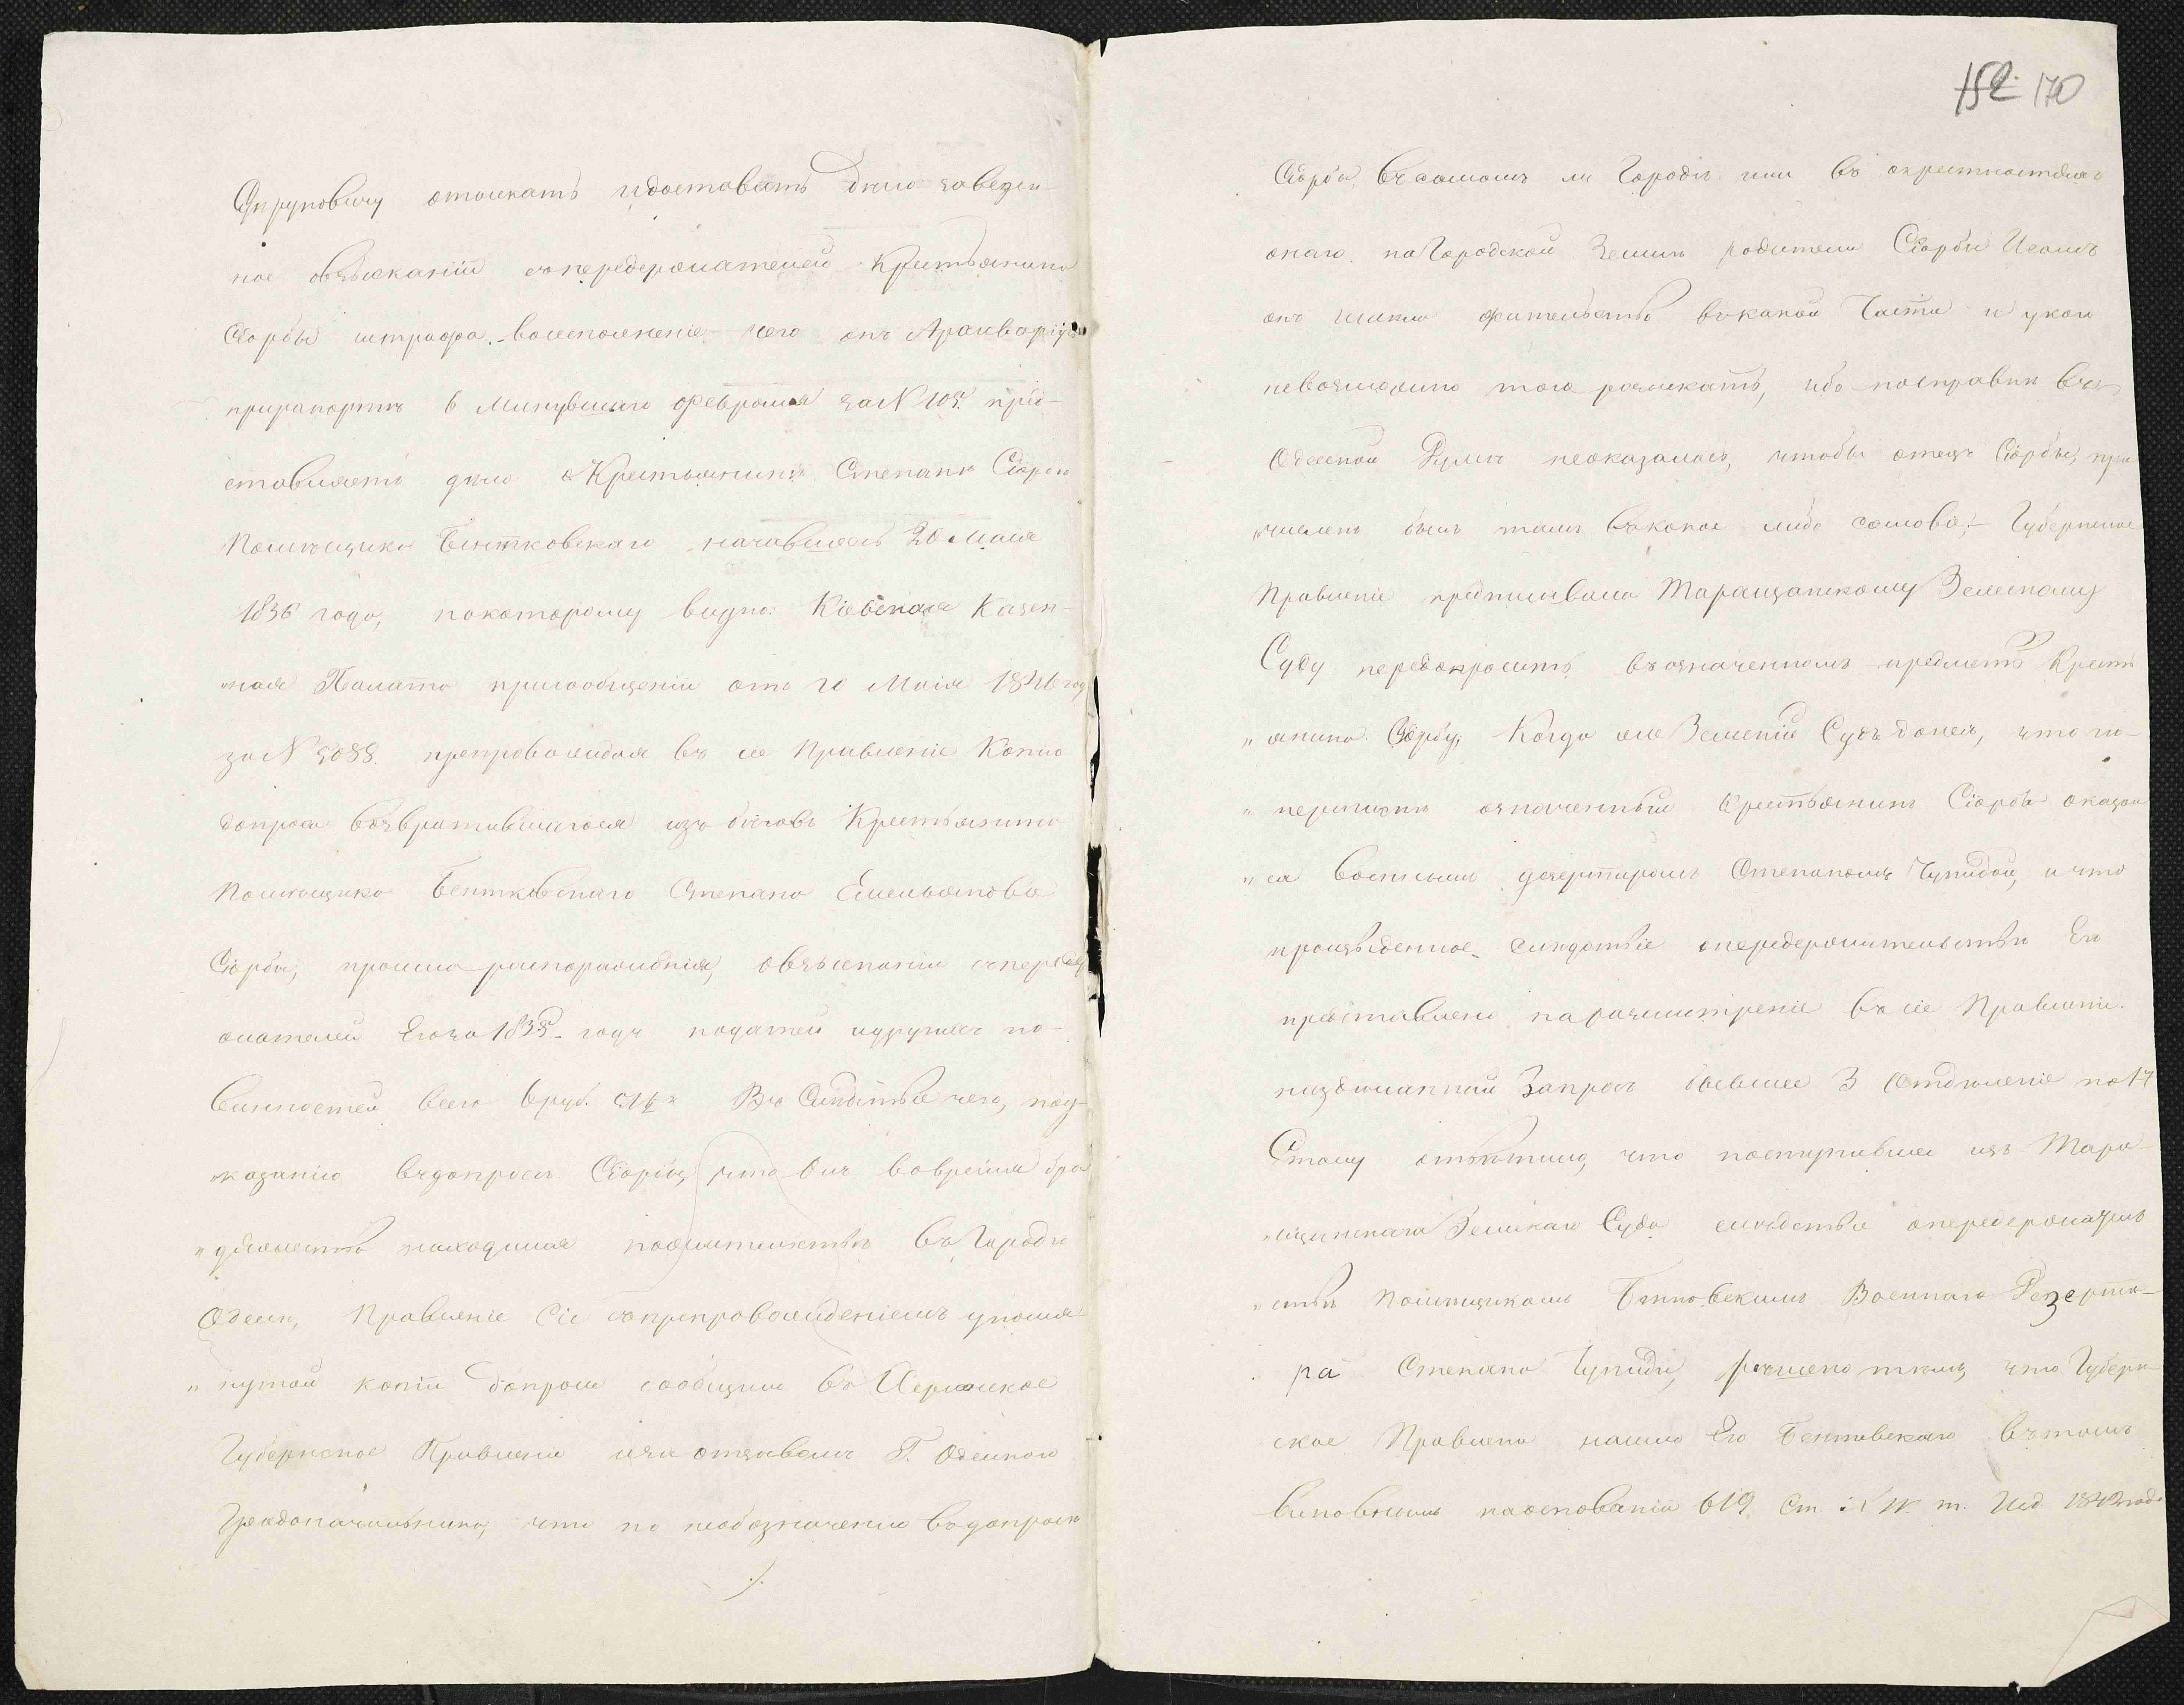 отыскать и доставить дело заведен-
ное о взыскании с передержателей Крестьянина
Сіорбы штрафа, во исполненіе чего онъ Архиваріусъ
при рапорте 6 Минувшаго Февраля за N 105. пред-
ставляетъ дело о Крестьянине Степане Сіорбе
Помещика Бентковскаго начавшееся 20 Маія
1836 года, по которому видно: Кіевская Казен-
"ная Палата при сообщеніи отъ 20 Маія 1836 год
за N препровождая въ се Правленіе Копію
допроса возвратившагося изъ беговъ Крестьянина
Помещика Бентковскаго Степана Емельянова
Сіорбы, просила распоряженія, о взысканіи с передер
жателей Его за 1835. годъ податей и другихъ по-
винностей всего 6 руб. Въ Следствіе чего, по
"казанію въ допросе Сіорбы, что Онъ во время бро
"дяжества находился въ Городе
Одессе, Правленіе Сіе съ препровожденіемъ упомя
"нутой копіи допроса сообщили въ Херсонское
Губернское Правленіе отзывомъ Г. Одесскаго
Градоначальника, что по необозначенію въ допросе
152 170
Сіорбы, въ самомъ ли Городе или въ окрестностяхъ
онаго на Городской Земле родители Сіорбы
онъ жительство въ какой Части и у кого
невозможно того розыскать, ибо по справке въ
Одесской Думе неоказалось, чтобы отецъ Сіорбы, при
"численъ былъ тамъ въ какое либо сословіе; Губернское
Правленіе предписывало Таращанскому Земскому
Суду передопросить въ означенномъ предмете Крестъ
"янина Сіорбу, Когда же Земскій Судъ донесъ, что по
" означенный Крестьянинъ Сіорба оказал
"ся военнымъ дезертиромъ Степаномъ и что
произведенное следствіе о передержательстве Его
представлено на разсмотреніе въ сіе Правленіе.
Запросъ бывшее 3 Отделеніе по 17
Столу ответило, что поступившее изъ Тара-
"щанскаго Земскаго Суда следствіе о передержатель
"стве Помещикомъ Бентковскимъ Военнаго Дезерти-
ра Степана решено темъ, что Губерн
ское Правленіе нашло Его Бентковскаго въ томъ
виновнымъ на основаніи 619 Ст. т. Изд 1842 года